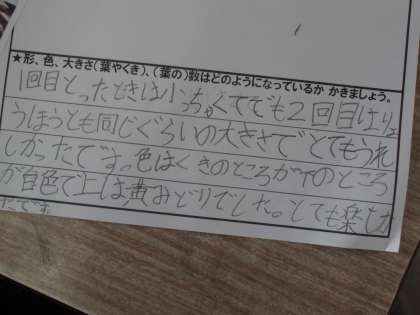 ★形、色、大きさ(葉やくき)、(葉の)数はどのようになっているか かきましょう。
1回目とったときは小っちゃくてでも2回目はりょ
うほうとも同じぐらいの大きさでとてもうれ
しかったです。色はくきのところが下のところ
が白色で上は黄みどりでした。とても楽しか
たです